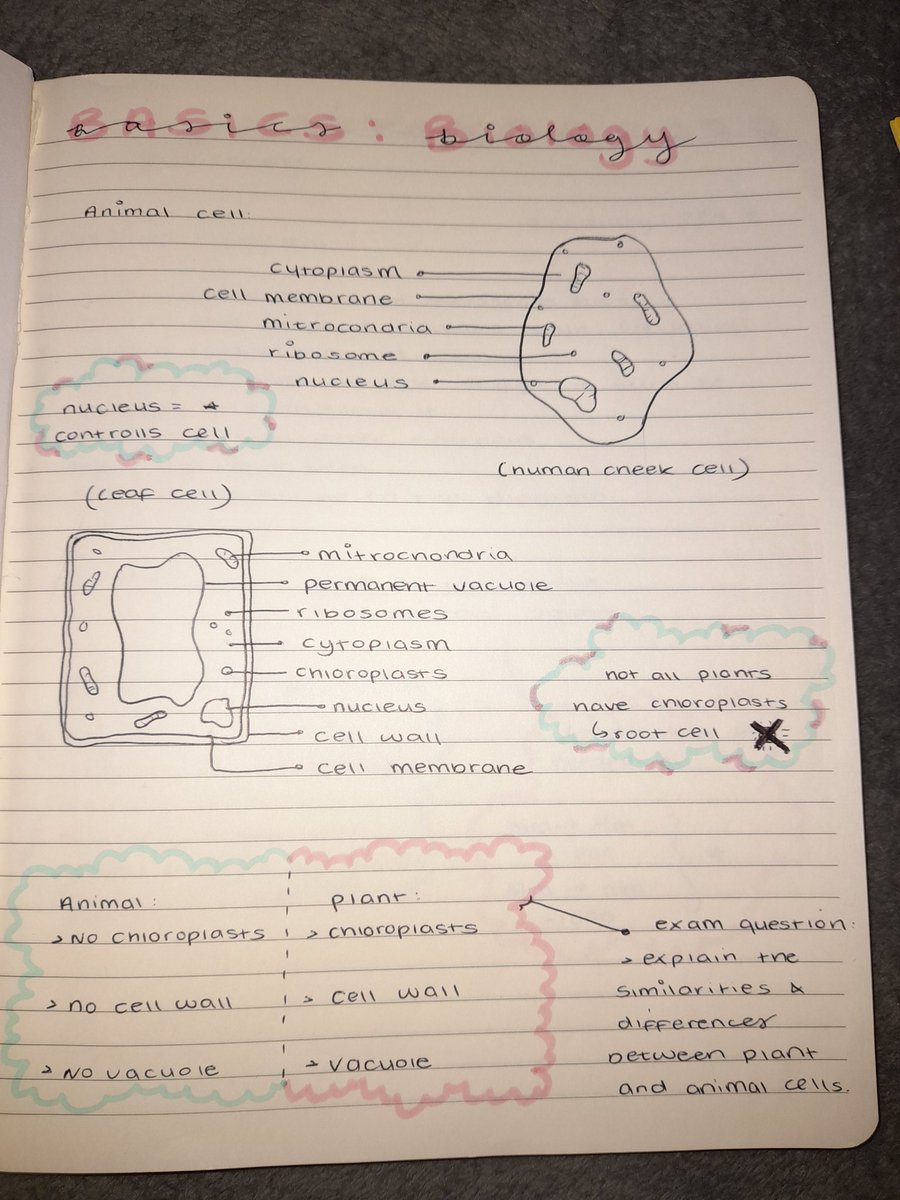 Basics: Biology
Animal cell:
cytoplasm
cell membrane
mitrocondria
ribosome
nucleus
nucleus =
controlls cell
(human cheek cell)
(Leaf cell)
mitrochondria
permanent vacuole
ribosomes
cytoplasm
chloroplasts
nucleus
cell wall
cell membrane
not all plants
have chloroplasts
↳ root cell
Animal:
> No chloroplasts
> no cell wall
> No vacuole
plant:
> chloroplasts
> cell wall
> vacuole
exam question:
> explain the
similarities &
differences
between plant
and animal cells.